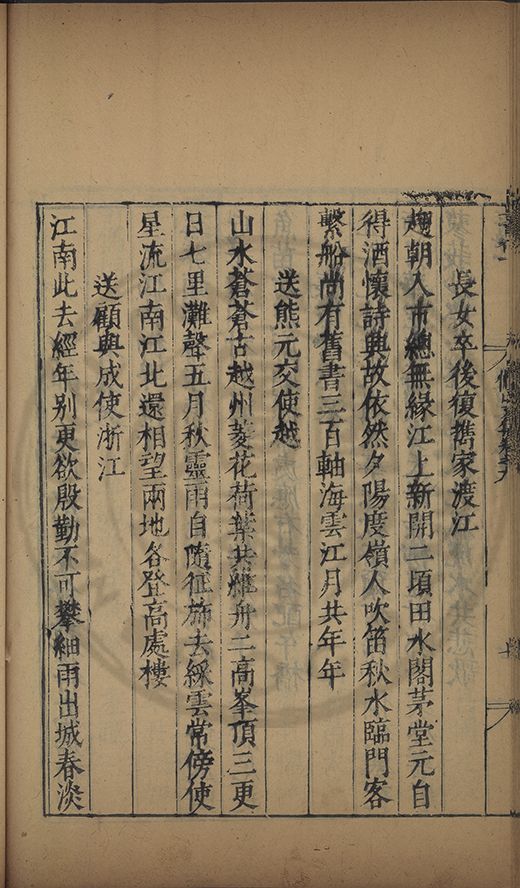 長女卒後復攜家渡江
趨朝入市總無緣江上新開二頃田水閣茅堂元自
得酒懷詩興故依然夕陽度嶺人吹笛秋水臨門客
繫船尚有舊書三百軸海雲江月共年年
送熊元交使越
山水蒼蒼古越州菱花荷葉共維舟二高峯頂三更
日七里灘聲五月秋靈雨自隨征旆去綵雲常傍使
星流江南江北還相望兩地各登高處樓
送顧與成使浙江
江南此去經年别更欲殷勤不可攀細雨出城春淡